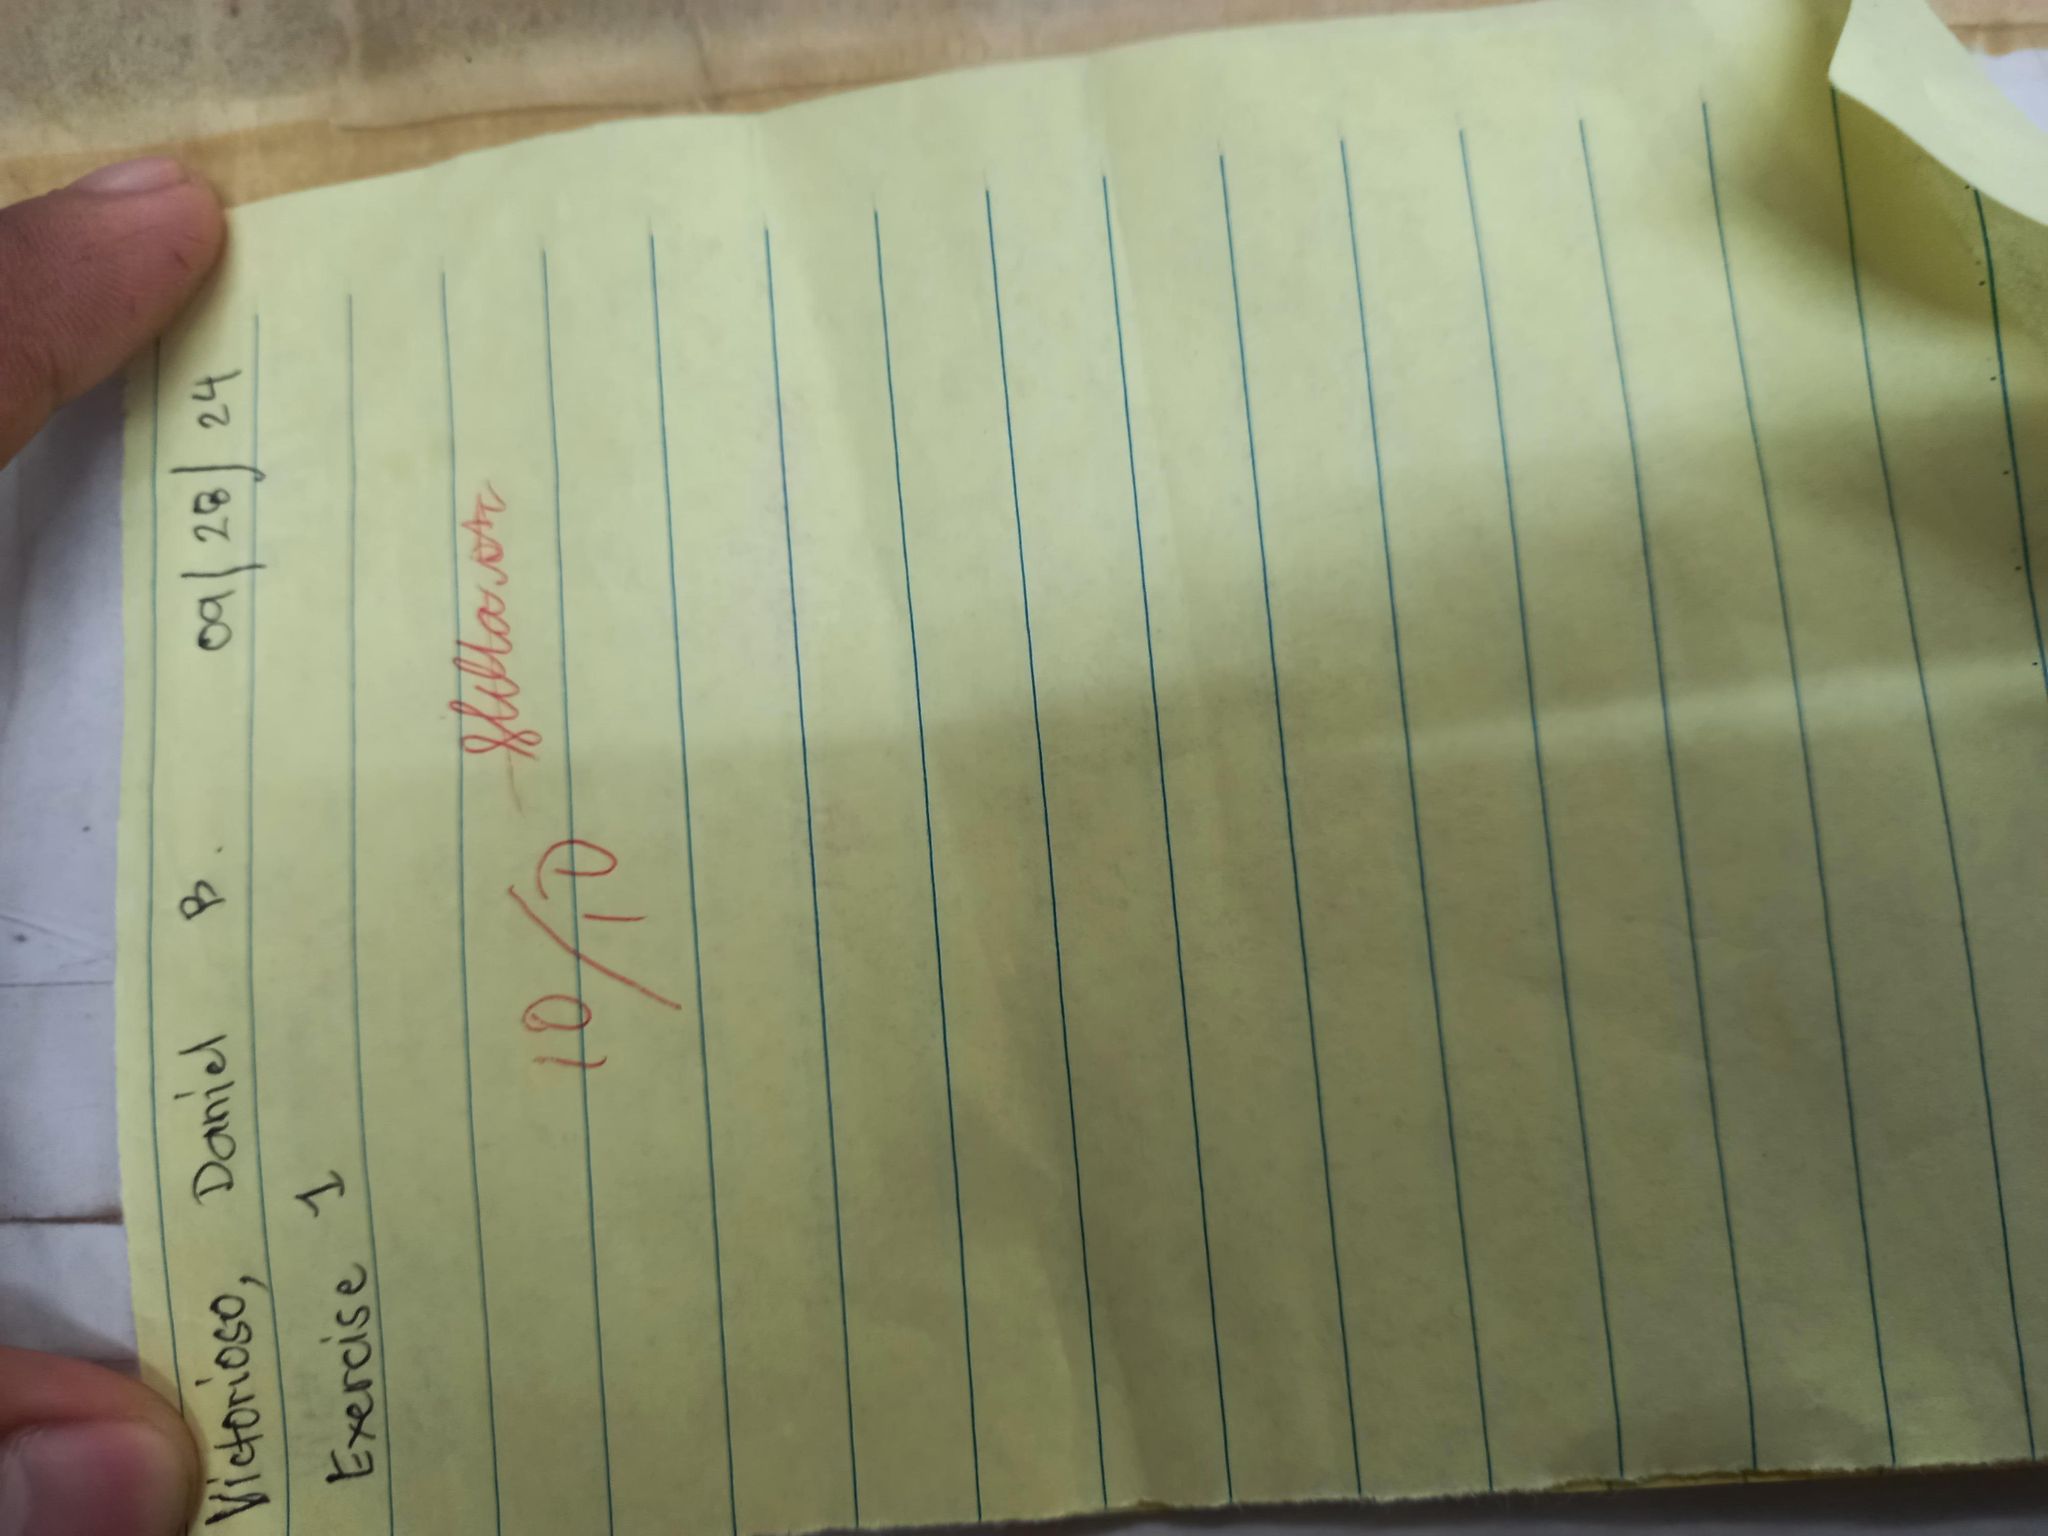 Victorioso, Daniel B. 09/28/24
Exercise 1
10/10